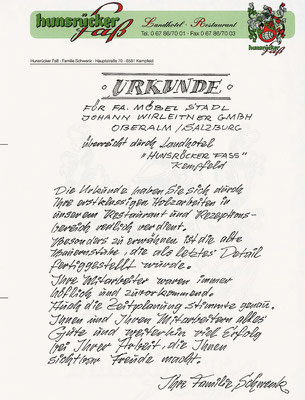 hunsrücker Faß
Landhotel · Restaurant
Tel. 0 67 86/70 01 · Fax 0 67 86/70 03
hunsrücker Faß
Hunsrücker Faß · Familie Schwenk · Hauptstraße 70 · 6581 Kempfeld
· URKUNDE ·
FÜR FA. MÖBEL STADL
JOHANN WIRLEITNER GMBH
OBERALM / SALZBURG
überreicht durch Landhotel
"HUNSRÜCKER FASS"
Kempfeld
Die Urkunde haben Sie sich durch
Ihre erstklassigen Holzarbeiten in
unserem Restaurant und Rezeptions-
bereich redlich verdient.
Besonders zu erwähnen ist die alte
Bauernstube, die als letztes Detail
fertiggestellt wurde.
Ihre Mitarbeiter waren immer
höflich und zuvorkommend.
Auch die Zeitplanung stimmte genau.
Ihnen und Ihren Mitarbeitern alles
Gute und weiterhin viel Erfolg
bei Ihrer Arbeit, die Ihnen
sichtbar Freude macht.
Ihre Familie Schwenk